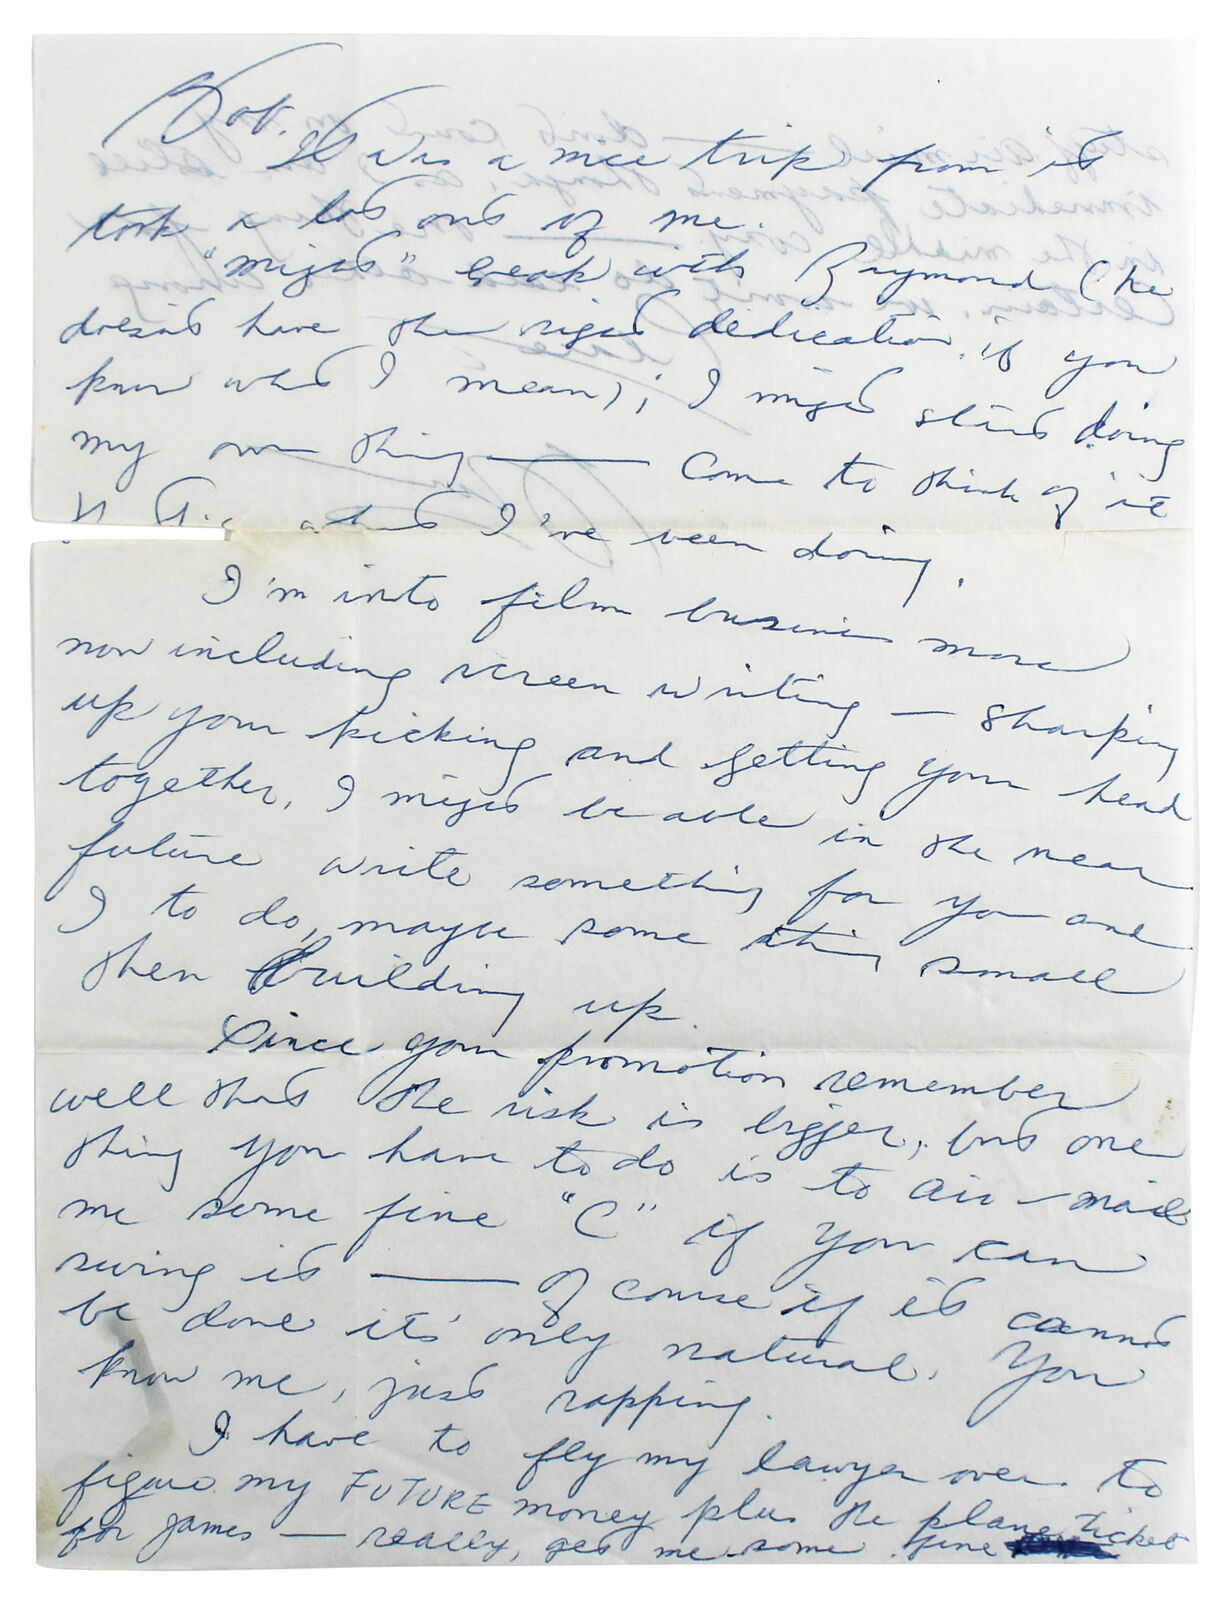 Bob.
It was a nice trip from it
took a lot out of me.
"might" break with Raymond (he
doesn't have the right dedication, if you
know what I mean); I might start doing
my own thing — come to think of it
what I've been doing.
I'm into film business more
now including screen writing — sharping
up your kicking and getting your head
together, I might be able in the near
future write something for you and
I to do, maybe some thing small
then building up.
Since your promotion remember
well that the risk is bigger, but one
thing you have to do is to air-mail
me some fine "C" if you can
swing it — of course if it cannot
be done it's only natural. You
know me, just rapping.
I have to fly my lawyer over to
figure my FUTURE money plus the plane ticket
for James — really, get me some fine